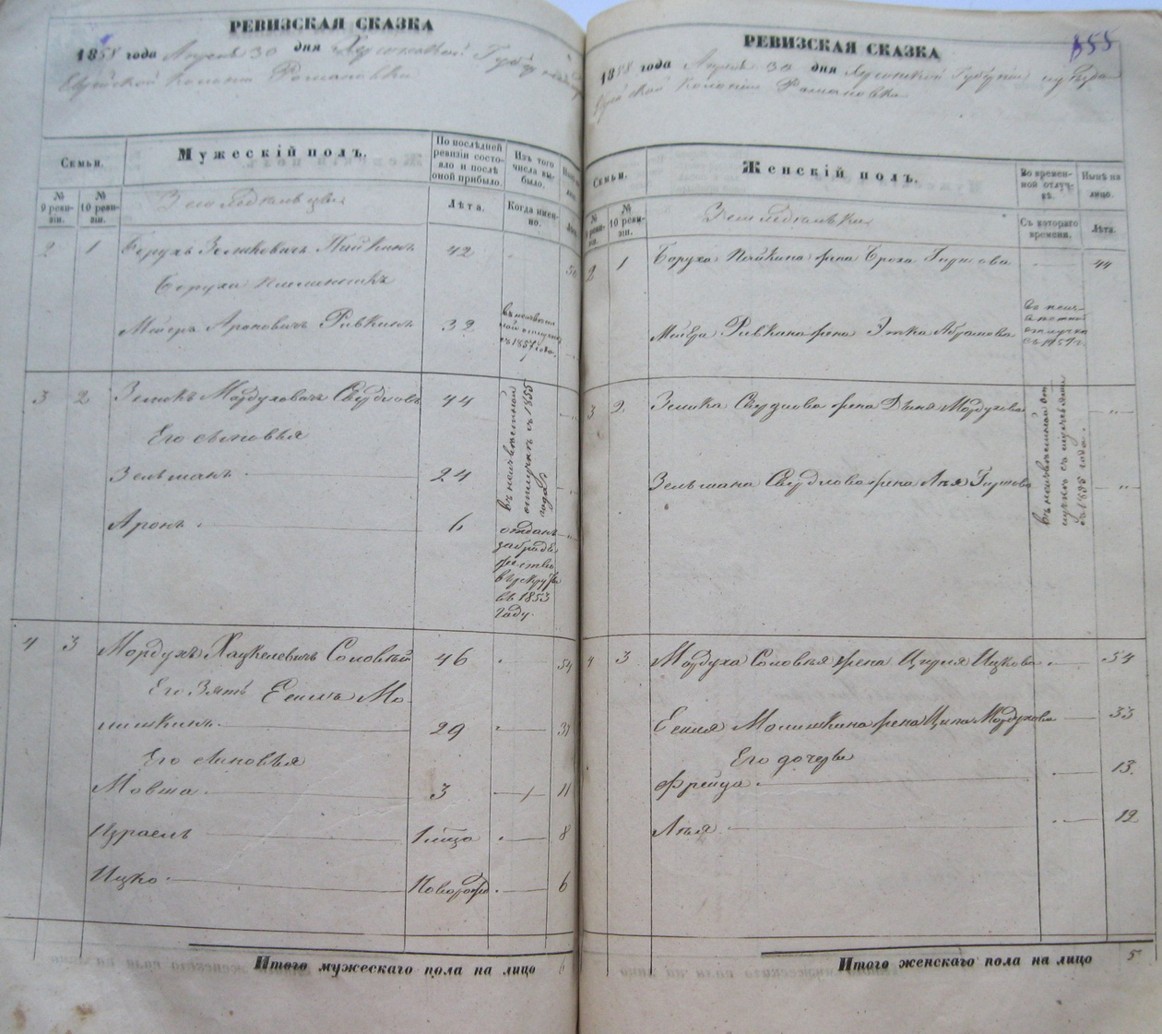 РЕВИЗСКАЯ СКАЗКА
1858 года Апреля 30 дня Херсонской Губернии
Еврейской Колоніи Романовки
Семьи.
Мужескій полъ.
По последней ревизіи состояло и после оной прибыло.
Изъ того числа выбыло.
№ 9 ревизіи.
№ 10 ревизіи.
Земледельцы
Лѣта.
Когда именно.
2 1 Борухъ Зеликовичъ Пейкинъ 42 50
Боруха племянникъ
Мейеръ Ароновичъ Ривкинъ 32 въ неизвестной отлучке съ 1857 года.
3 2 Зеликъ Мордуховичъ Свудловъ 44
Его сыновья
Зельманъ 24
въ неизвестной отлучке съ 1855 года
Аронъ 6
отданъ въ 1853 году.
4 3 Мордухъ Хацкелевичъ Соловей 46 54
Его Зять Еселъ Мо-
шишкинъ 29 37
Его сыновья
Мовша 3 11
Израель 1 8
Ицко Новорожд. 6
Итого мужескаго пола на лицо 6
855
РЕВИЗСКАЯ СКАЗКА
1858 года Апреля 30 дня Херсонской Губерніи
Еврейской Колоніи Романовки
Семьи.
Женскій полъ.
Во временной отлучкѣ.
Нынѣ на лицо.
№ 9 ревизіи.
№ 10 ревизіи.
Съ котораго времени.
Лѣта.
2 1 Боруха Пейкина жена Броха Гиршова 44
Мейера Ривкина жена Этка Абрамова
съ 1857 г.
3 2 Зелика Свудлова жена Двыня Мордухова
Зельмана Свудлова жена Лея Гиршова
въ неизвестной отлучке съ 1855 года.
4 3 Мордуха Соловья жена Цирля Ицкова 54
Еселя Мошишкина жена Ципа Мордухова 33
Его дочери
Фрейда 13
Лея 12
Итого женскаго пола на лицо 5